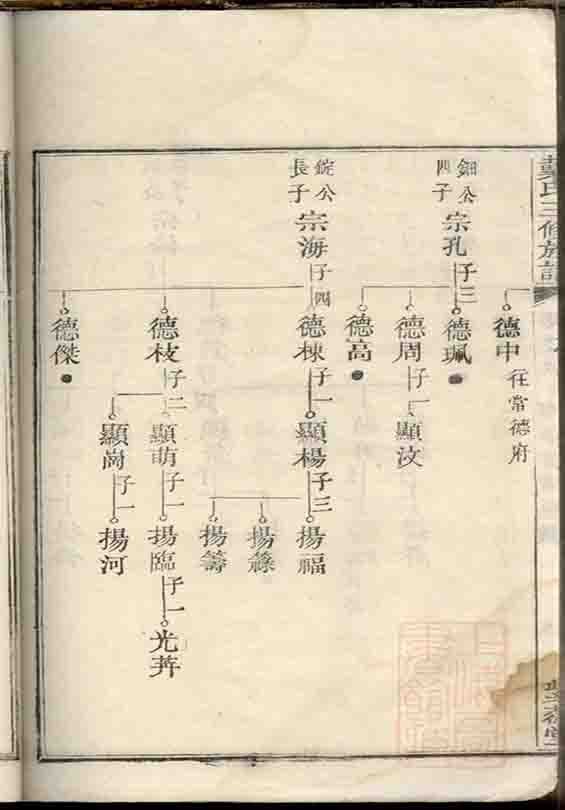 戴氏三修族譜
德中 往常德府
鈿公四子 宗孔 子三
德珮
德周 子一
顯汶
德高
錠公長子 宗海 子四
德棟 子一
顯楊 子三
揚福
揚籙
揚籌
德枝 子二
顯萌 子一
揚臨 子一
光莽
顯崗 子一
揚河
德傑